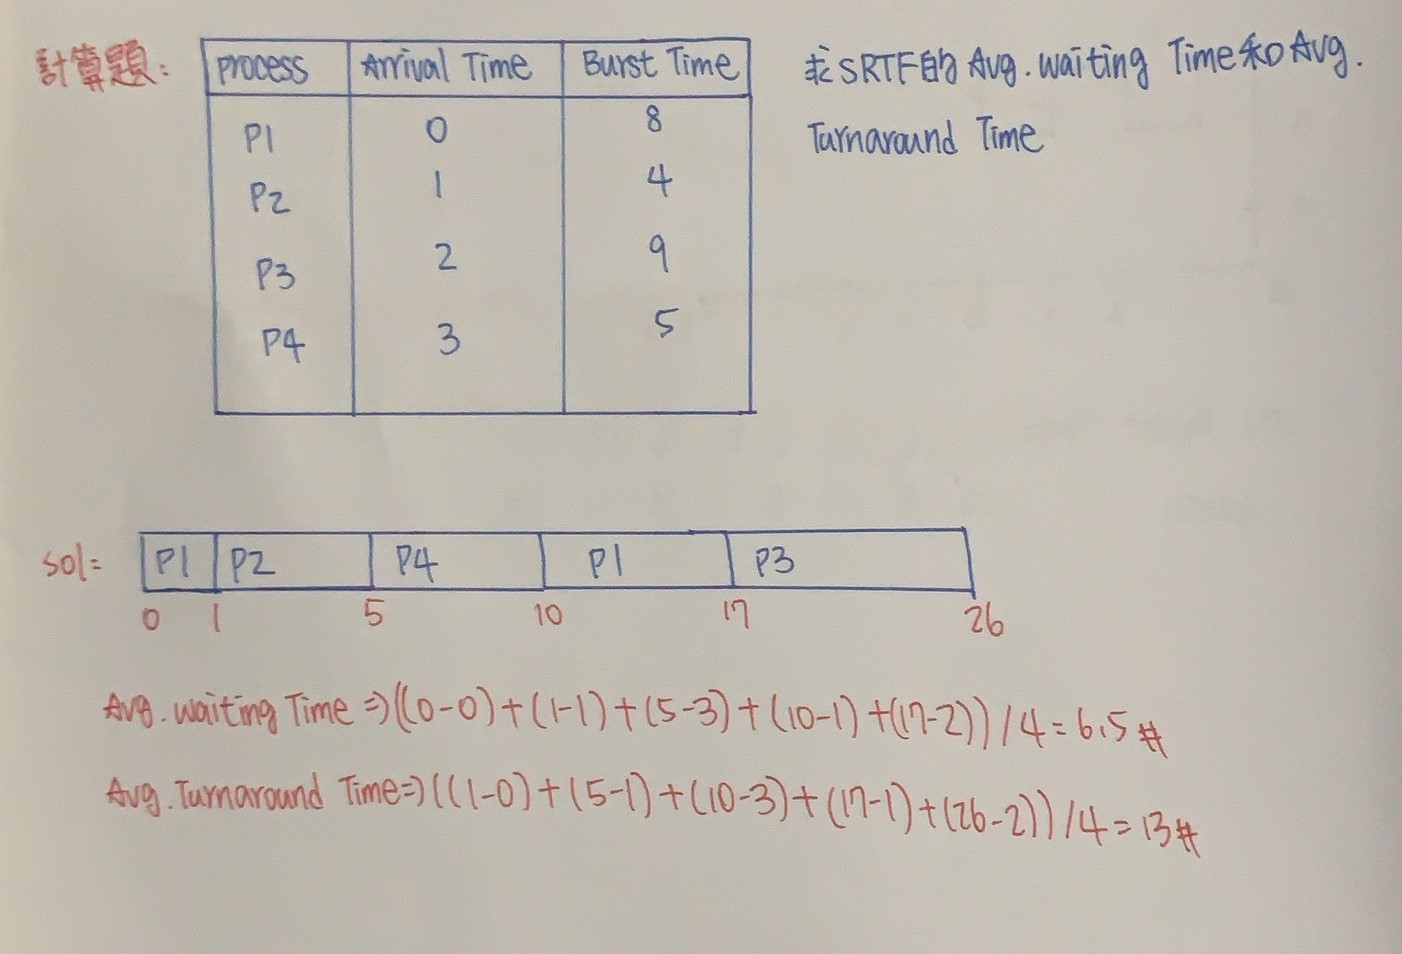 計算題: process Arrival Time Burst Time 求SRTF的 Avg. waiting Time和 Avg.
Turnaround Time
P1 0 8
P2 1 4
P3 2 9
P4 3 5
sol= P1 P2 P4 P1 P3
0 1 5 10 17 26
Avg. waiting Time ⇒ ((0-0)+(1-1)+(5-3)+(10-1)+(17-2))/4=6.5 #
Avg. Turnaround Time⇒ (((1-0)+(5-1)+(10-3)+(17-1)+(26-2))/4=13 #